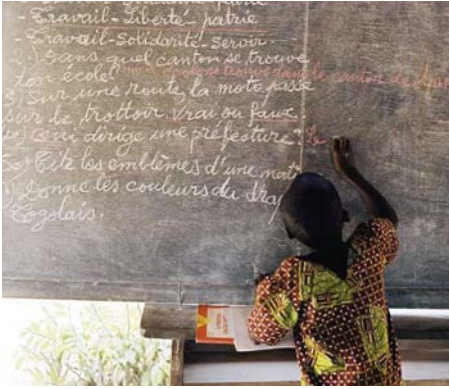 - Travail - Liberté - patrie
- Travail - Solidarité - Servir.
2.) Dans quel canton se trouve
ton école mon école se trouve dans le canton de
3) Sur une route, la moto passe
sur le trottoir. vrai ou faux.
4) Qui dirige une préfecture? Le
5) Cite les emblèmes d'une nati
) Donne les couleurs du drap
Togolais.